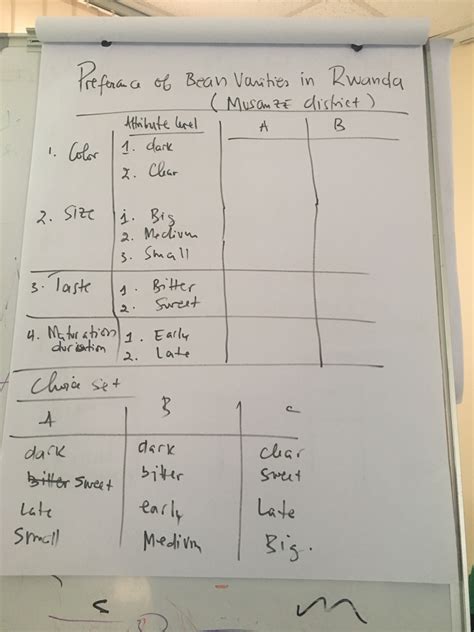 Preferance of Bean Varities in Rwanda
( MUSANZE district )
Attribute level A B
1. Color 1. dark
2. Clear
2. SIZE 1. Big
2. Medium
3. Small
3. Taste 1. Bitter
2. Sweet
4. Maturation 1. Early
duration 2. Late
Choice set
A B C
dark dark clear
bitter sweet bitter sweet
Late early Late
Small Medium Big.